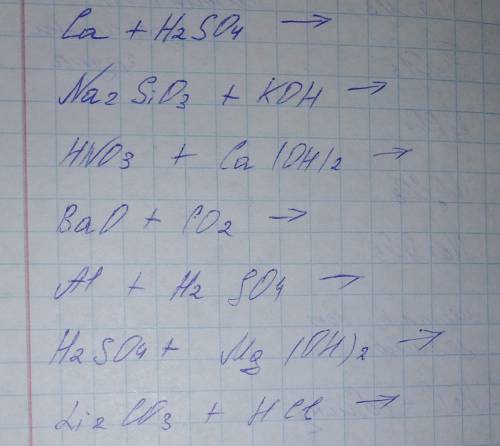 Ca + H2SO4 →
Na2SiO3 + KOH →
HNO3 + Ca(OH)2 →
BaO + CO2 →
Al + H2SO4 →
H2SO4 + Mg(OH)2 →
Li2CO3 + HCl →